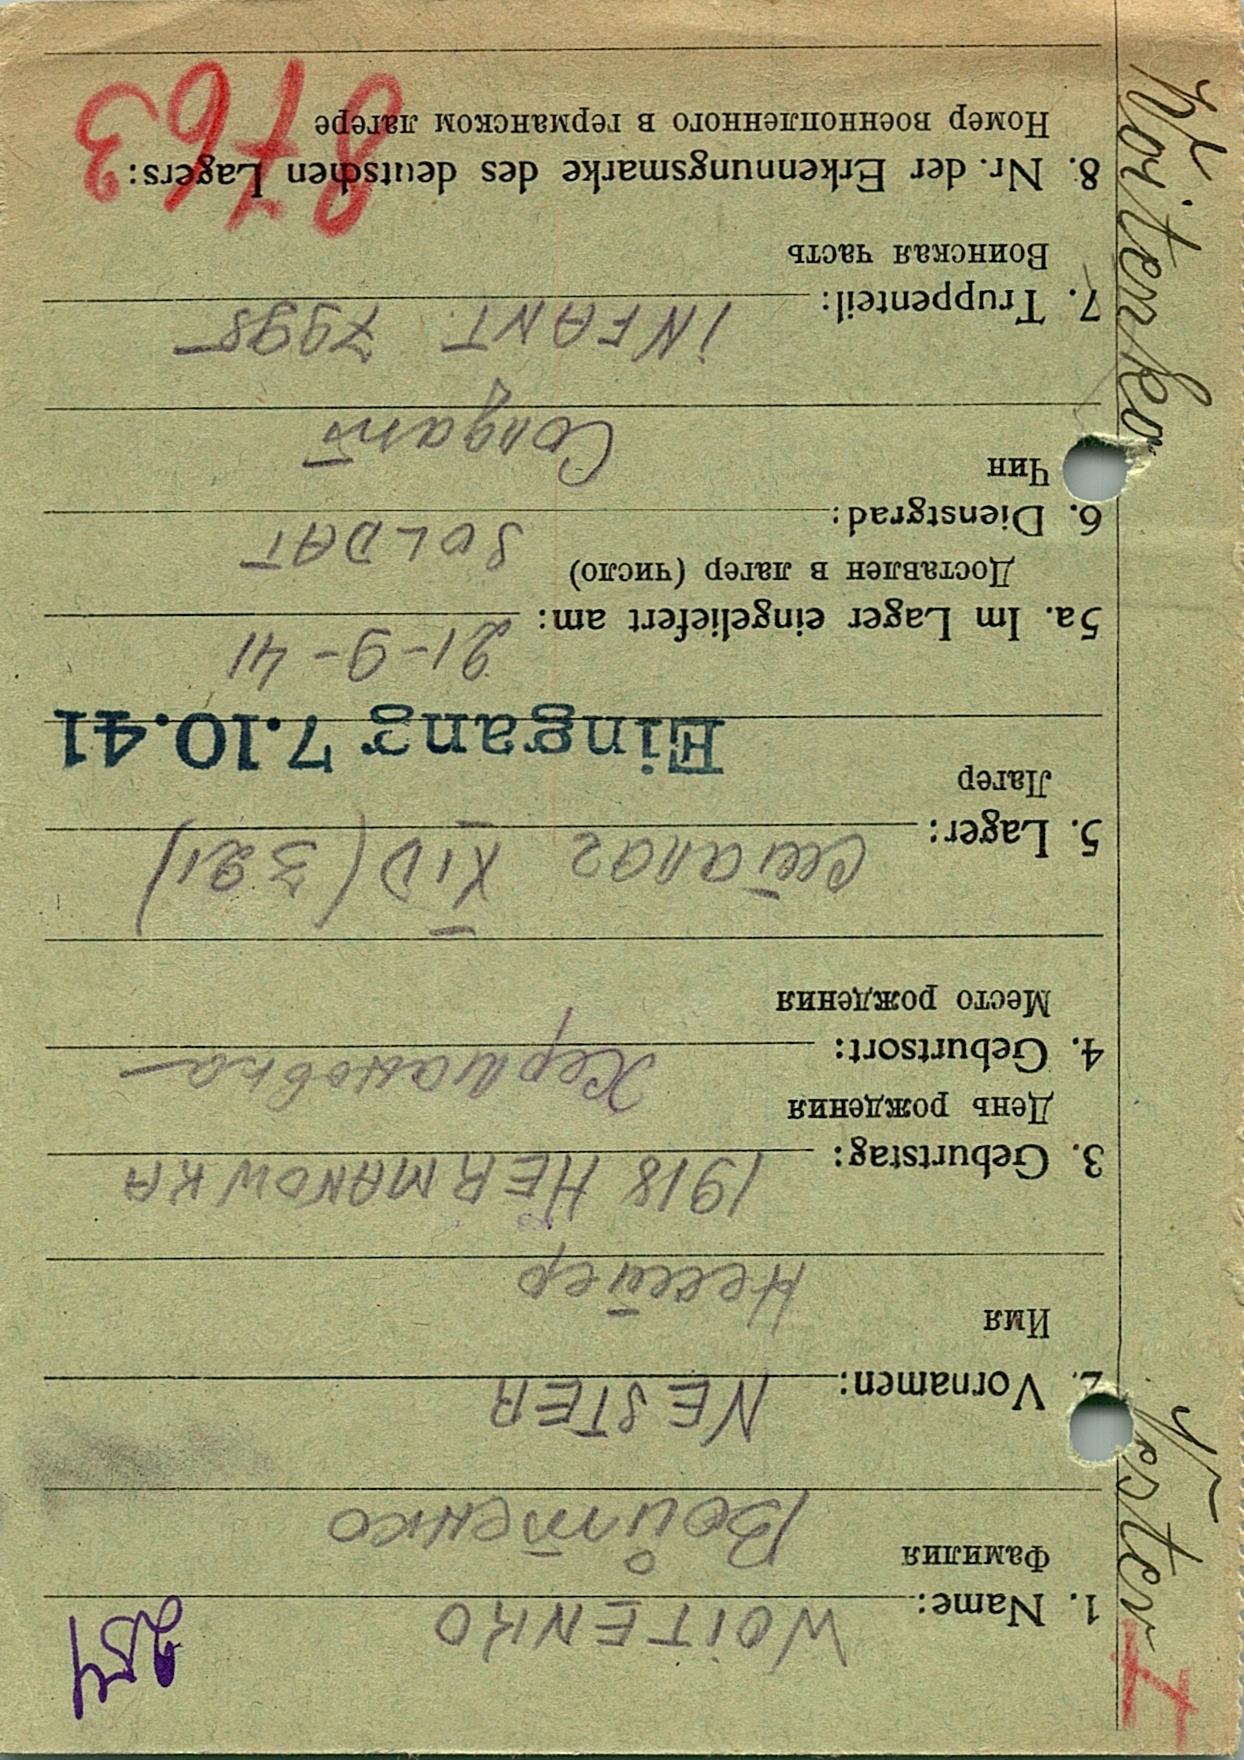 254
1. Name: WOITENKO
Фамилия Войтенко
2. Vornamen: NESTER
Имя Нестер
3. Geburtstag: 1918 HERMANOWKA
День рождения
4. Geburtsort: Хермановка
Место рождения
5. Lager: Сталаг XI D (321)
Лагер
Eingang 7.10.41
5a. Im Lager eingeliefert am: 21-9-41
Доставлен в лагер (число)
6. Dienstgrad: SOLDAT
Чин Солдат
7. Truppenteil: INFANT. 7995
Воинская часть
8. Nr. der Erkennungsmarke des deutschen Lagers: 8763
Номер военнопленного в германском лагере
Woitenko Nester